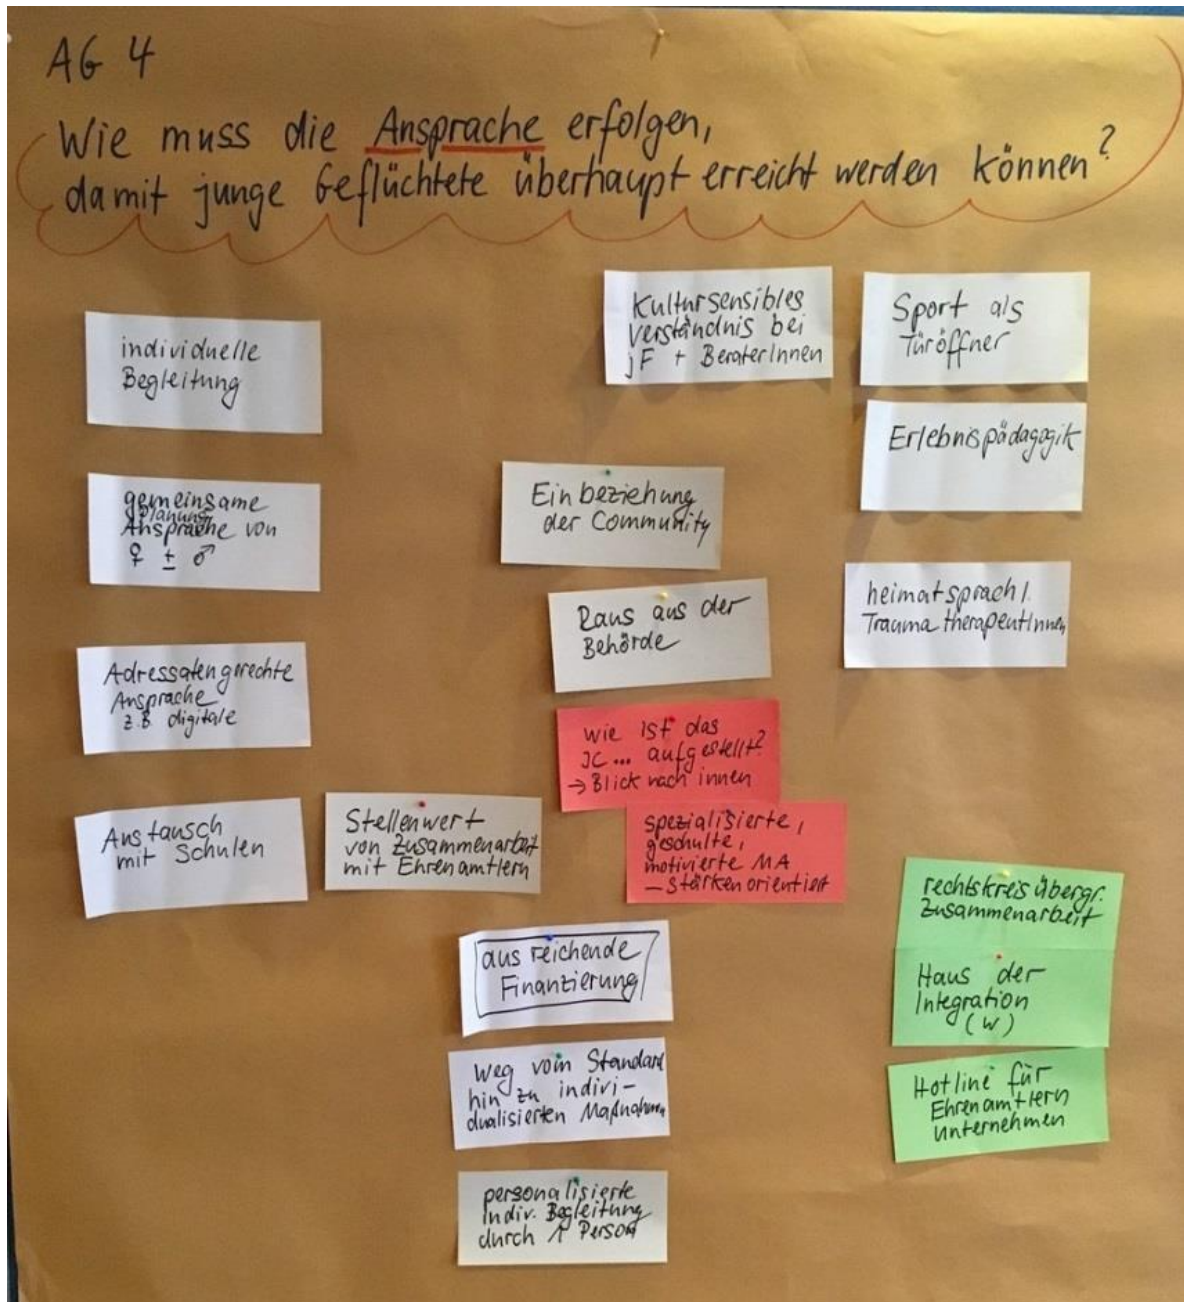 AG 4
Wie muss die Ansprache erfolgen,
damit junge Geflüchtete überhaupt erreicht werden können?
individuelle
Begleitung
gemeinsame
Planung
Ansprache von
♀ ± ♂
Adressatengerechte
Ansprache
z.B. digitale
Austausch
mit Schulen
Stellenwert
von Zusammenarbeit
mit Ehrenamtlern
Kultursensibles
Verständnis bei
jF + BeraterInnen
Einbeziehung
der Community
Raus aus der
Behörde
wie ist das
JC... aufgestellt?
→ Blick nach innen
spezialisierte,
geschulte,
motivierte MA
– stärkenorientiert
ausreichende
Finanzierung
Weg vom Standard
hin zu indivi-
dualisierten Maßnahmen
personalisierte
indiv. Begleitung
durch 1 Person
Sport als
Türöffner
Erlebnispädagogik
heimatsprachl.
TraumatherapeutInnen
rechtskreisübergr.
Zusammenarbeit
Haus der
Integration
(W)
Hotline für
Ehrenamtlern
Unternehmen